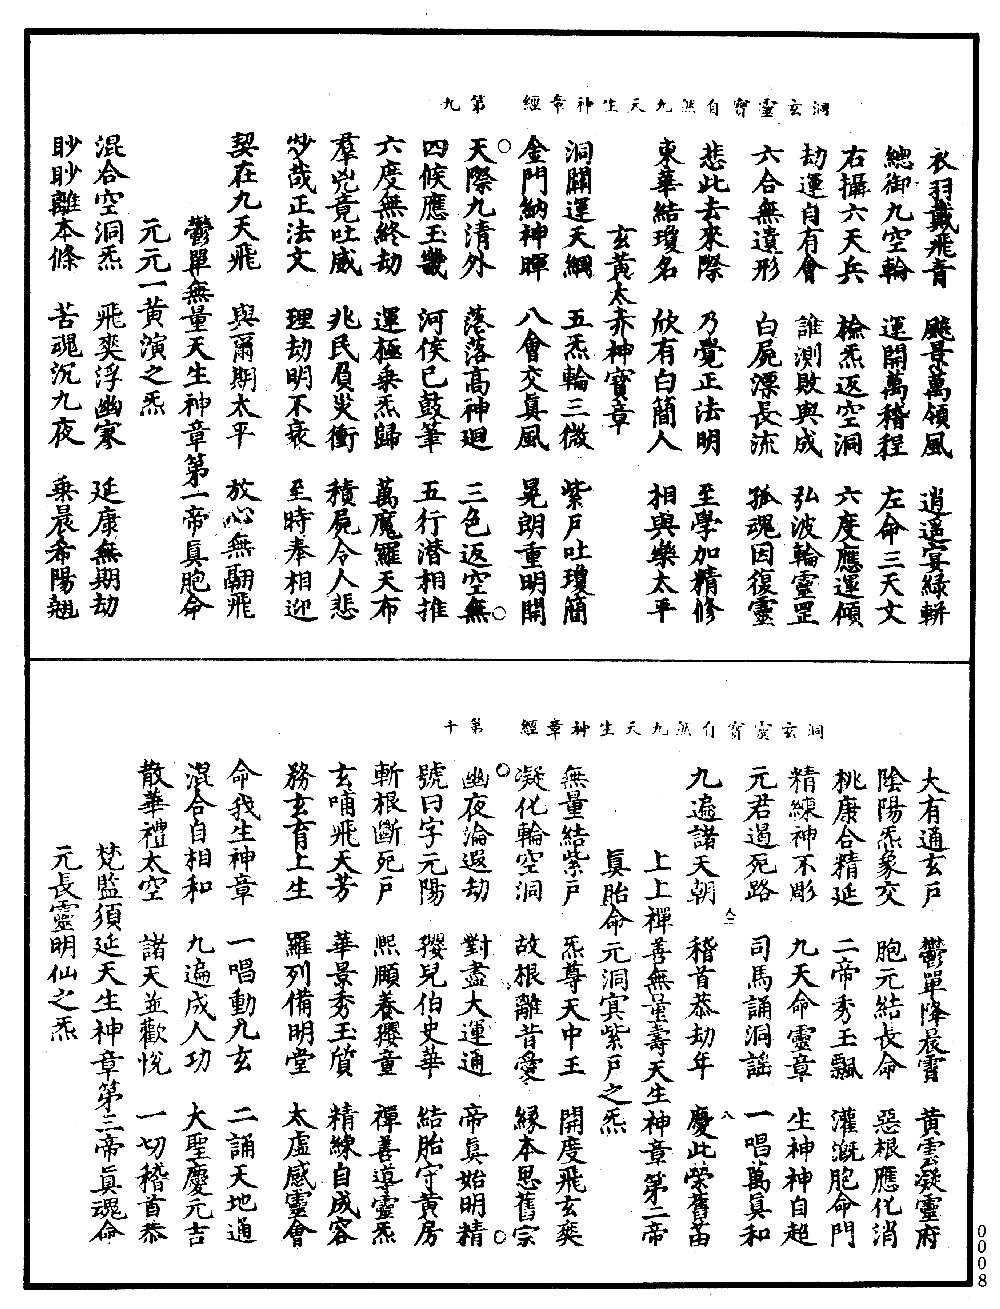 洞玄靈寶自然九天生神章經　第九
衣羽戴飛青　飈景萬領風　逍遥宴綠軿
總御九空輪　運開萬稽程　左命三天文
右攝六天兵　檢炁返空洞　六度應運傾
劫運自有會　誰測敗與成　弘波輪靈罡
六合無遺形　白屍漂長流　孤魂因復靈
悲此去來際　乃覺正法明　至學加精修
東華結瓊名　欣有白簡人　相與樂太平
玄黃太赤神寶章
洞關運天綱　五炁輪三微　紫戸吐瓊簡
金門納神暉　八會交真風　晃朗重明開
天際九清外　落落高神廻　三色返空無
四候應玉璣　河侯已鼓筆　五行潛相推
六度無終劫　運極乗炁歸　萬魔羅天布
羣兇竟吐威　兆民負災衝　積屍令人悲
妙哉正法文　理劫明不衰　至時奉相迎
契在九天飛　與爾期太平　放心無翻飛
鬱單無量天生神章第一帝真胞命
元元一黃演之炁
混合空洞炁　飛爽浮幽寥　延康無期劫
眇眇離本條　苦魂沉九夜　乗晨希陽翹
洞玄靈寶自然九天生神章經　第十
大有通玄戸　鬱單降晨霄　黃雲凝靈府
陰陽炁象交　胞元結長命　惡根應化消
桃康合精延　二帝秀玉飄　灌漑胞命門
精練神不彫　九天命靈章　生神神自超
元君過死路　司馬誦洞謡　一唱萬真和
九遍諸天朝　稽首恭劫年　慶此榮舊苗
上上禪善無量壽天生神章第二帝
真胎命元洞宾紫戸之炁
無量結紫戸　炁尊天中王　開度飛玄爽
凝化輪空洞　故根離昔愛　緣本思舊宗
幽夜淪遐劫　對盡大運通　帝真始明精
號曰字元陽　瓔兒伯史華　結胎守黃房
斬根斷死戸　熙頤養瓔童　禪善導靈炁
玄哺飛天芳　華景秀玉質　精練自成容
務玄育上生　羅列備明堂　太虛感靈會
命我生神章　一唱動九玄　二誦天地通
混合自相和　九遍成人功　大聖慶元吉
散華禮太空　諸天並歡悅　一切稽首恭
梵監須延天生神章第三帝真魂命
元長靈明仙之炁
0008